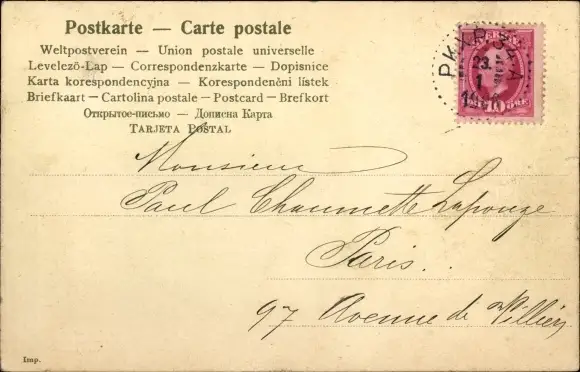 Postkarte — Carte postale
Weltpostverein — Union postale universelle
Levelezö-Lap — Correspondenzkarte — Dopisnice
Karta korespondencyjna — Korespondenční lístek
Briefkaart — Cartolina postale — Postcard — Brefkort
Открытое-письмо — Дописна Карта
TARJETA POSTAL
PKXP
23
1
10 ÖRE
Monsieur
Paul Chaumette Lapouze
Paris.
97 Avenue de Villiers
Imp.